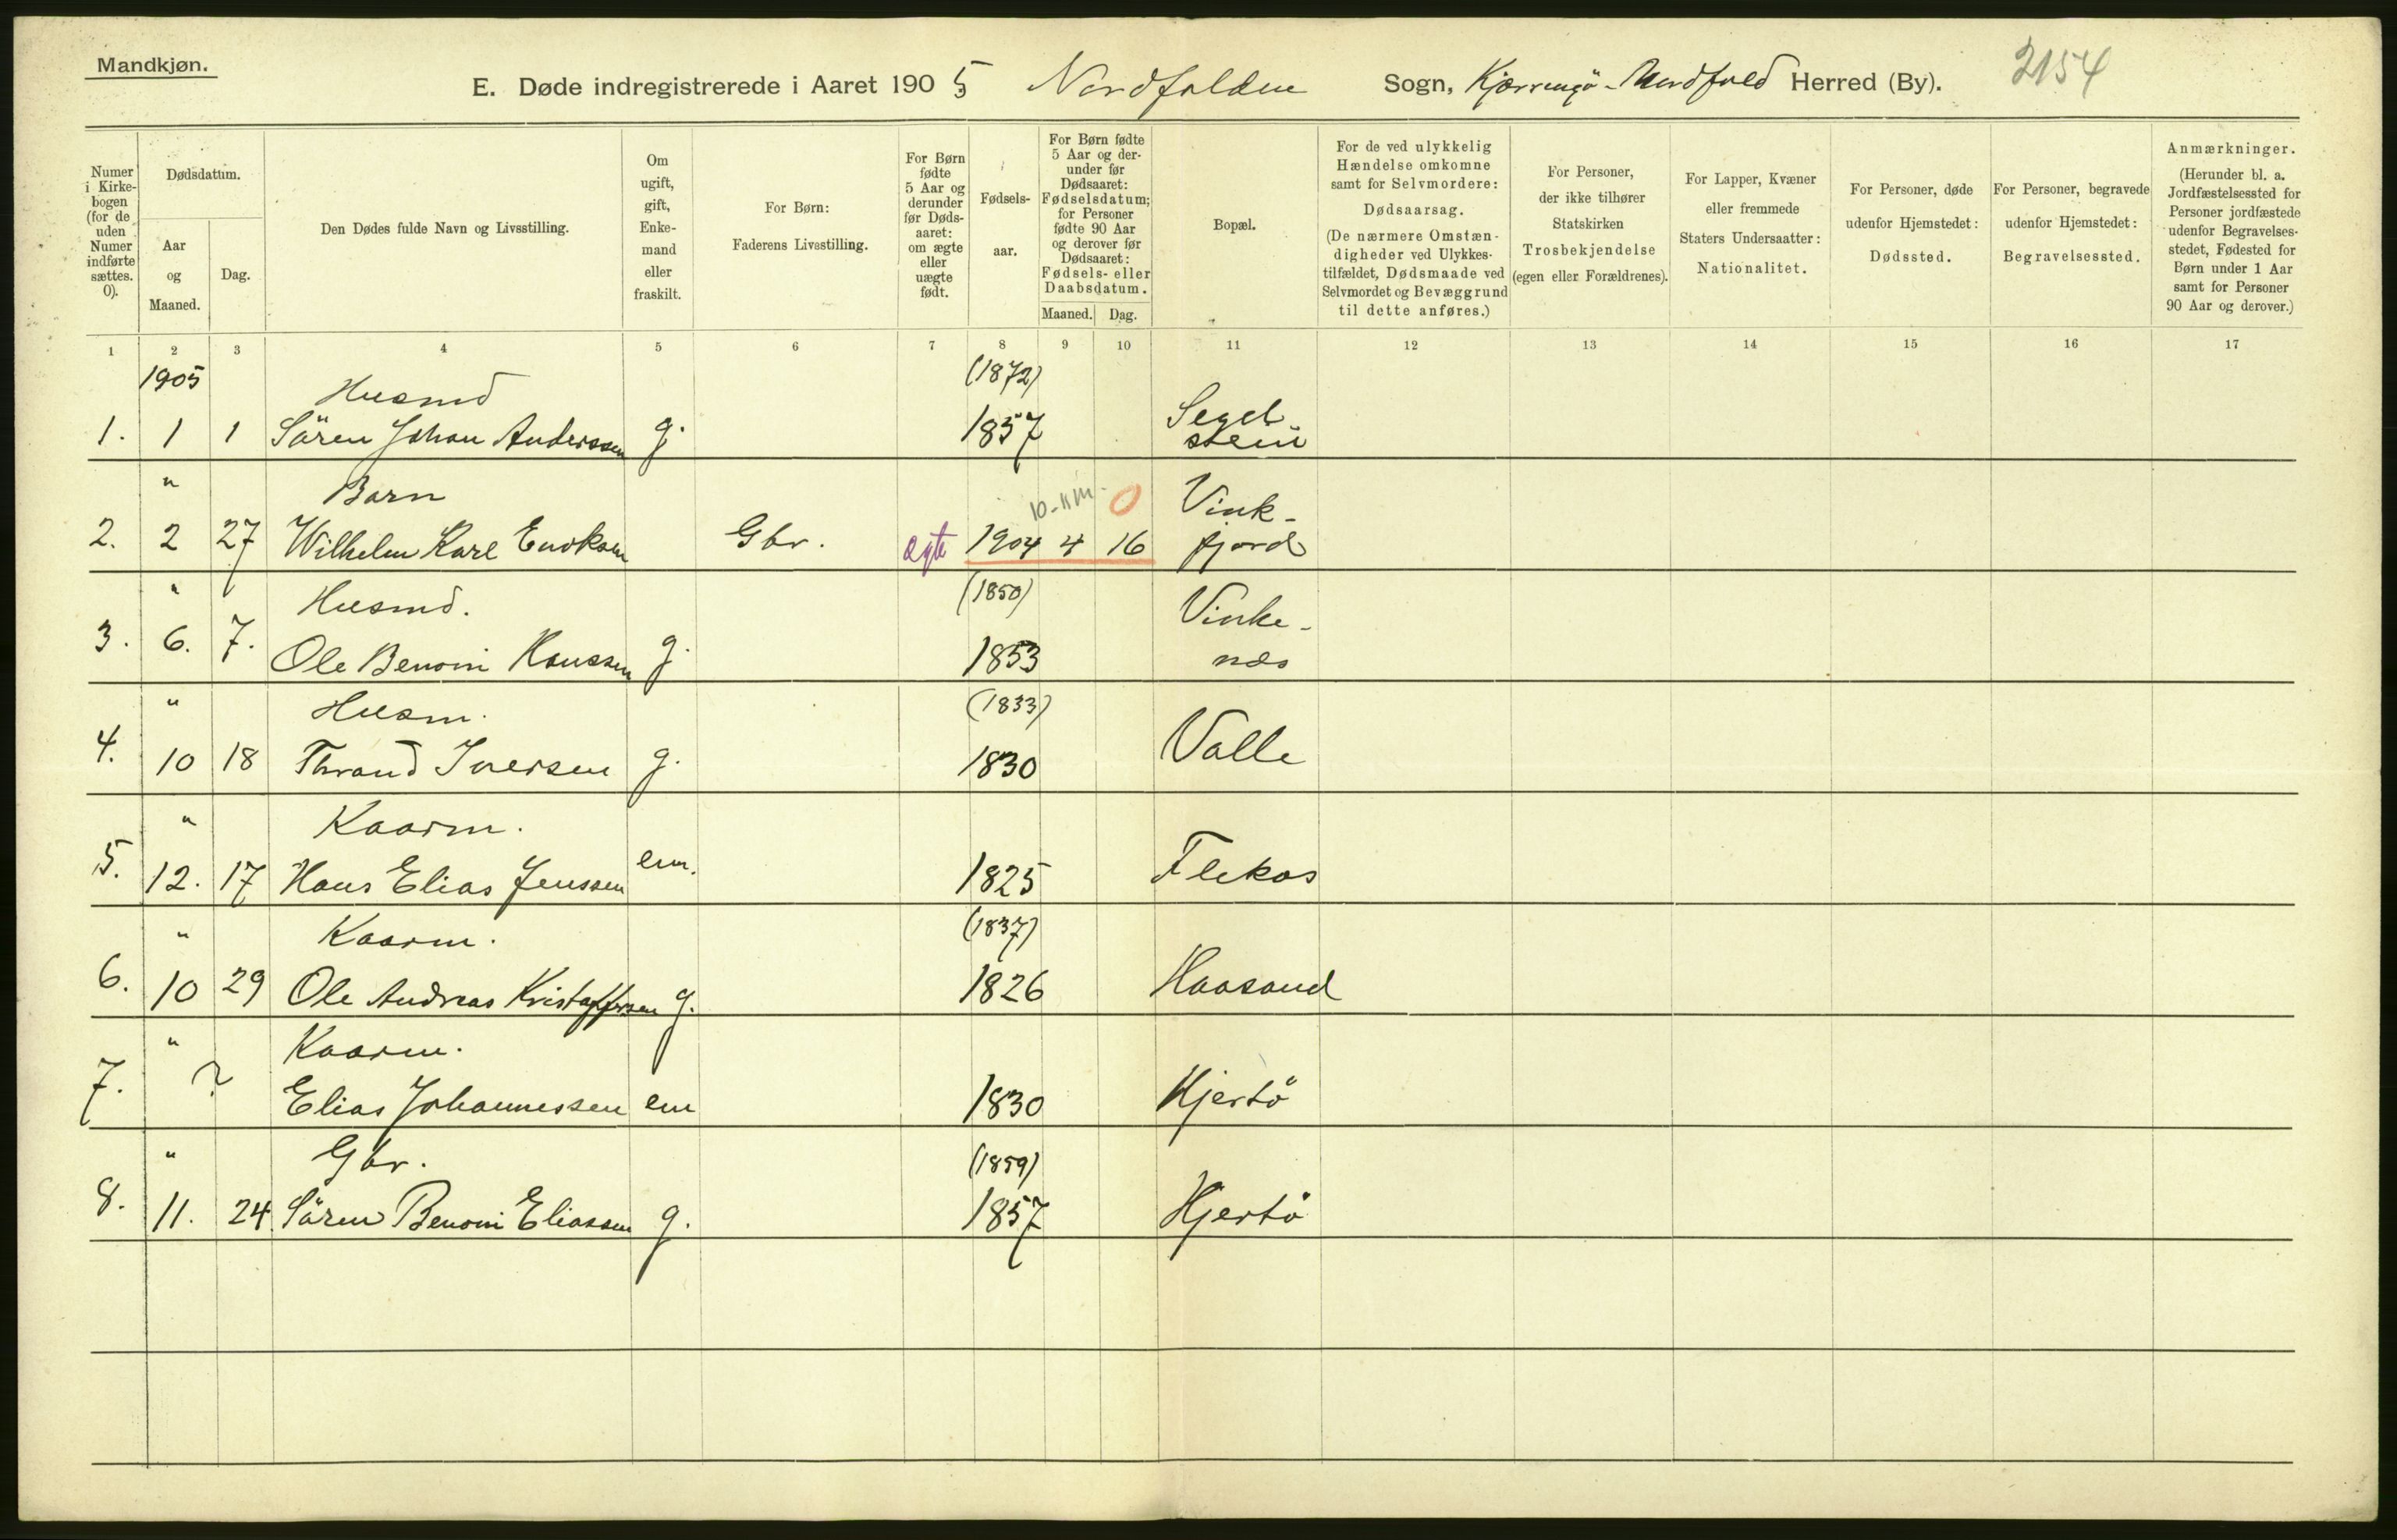 Mandkjøn.
E. Døde indregistrerede i Aaret 1905 Nordfolden Sogn, Kjærringö-Nordfold Herred (By). 2154
Numer i Kirkebogen (for de uden Numer indførte sættes. 0).
Dødsdatum.
Aar og Maaned.
Dag.
Den Dødes fulde Navn og Livsstilling.
Om ugift, gift, Enkemand eller fraskilt.
For Børn: Faderens Livsstilling.
For Børn fødte 5 Aar og derunder før Dødsaaret: om ægte eller uægte født.
Fødselsaar.
For Børn fødte 5 Aar og derunder før Dødsaaret: Fødselsdatum; for Personer fødte 90 Aar og derover før Dødsaaret: Fødsels- eller Daabsdatum.
Maaned. Dag.
Bopæl.
For de ved ulykkelig Hændelse omkomne samt for Selvmordere: Dødsaarsag. (De nærmere Omstændigheder ved Ulykkestilfældet, Dødsmaade ved Selvmordet og Bevæggrund til dette anføres.)
For Personer, der ikke tilhører Statskirken Trosbekjendelse (egen eller Forældrenes).
For Lapper, Kvæner eller fremmede Staters Undersaatter: Nationalitet.
For Personer, døde udenfor Hjemstedet: Dødssted.
For Personer, begravede udenfor Hjemstedet: Begravelsessted.
Anmærkninger. (Herunder bl. a. Jordfæstelsessted for Personer jordfæstede udenfor Begravelsesstedet, Fødested for Børn under 1 Aar samt for Personer 90 Aar og derover.)
1 2 3 4 5 6 7 8 9 10 11 12 13 14 15 16 17
1905 Husmd (1872) Segel-
1. 1 1 Sören Johan Anderssen g. 1857 stein
" Barn 10-11 M. 0 Vink-
2. 2 27 Wilhelm Karl Eriksen Gbr. ægte 1904 4 16 fjord
" Husmd. (1850) Vinke-
3. 6. 7. Ole Benoni Hanssen g. 1853 næs
" Husm. (1833)
4. 10 18 Thrand Iversen g. 1830 Valle
" Kaarm.
5. 12. 17 Hans Elias Jenssen em. 1825 Flekas
" Kaarm. (1837)
6. 10 29 Ole Andreas Kristoffersen g. 1826 Haasand
" Kaarm.
7. ? Elias Johannessen em 1830 Hjertö
" Gbr. (1859)
8. 11. 24 Sören Benoni Eliassen g. 1857 Hjertö